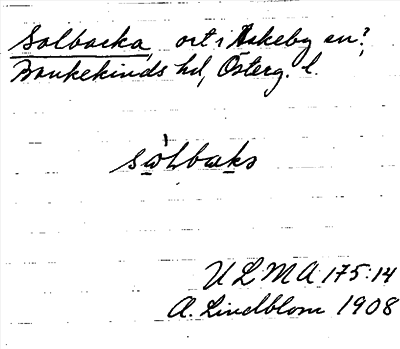 Solbacka, ort i Askeby sn?,
Bankekinds hd, Österg. l.
sωLbaks
ULMA 175:14
A. Lindblom 1908